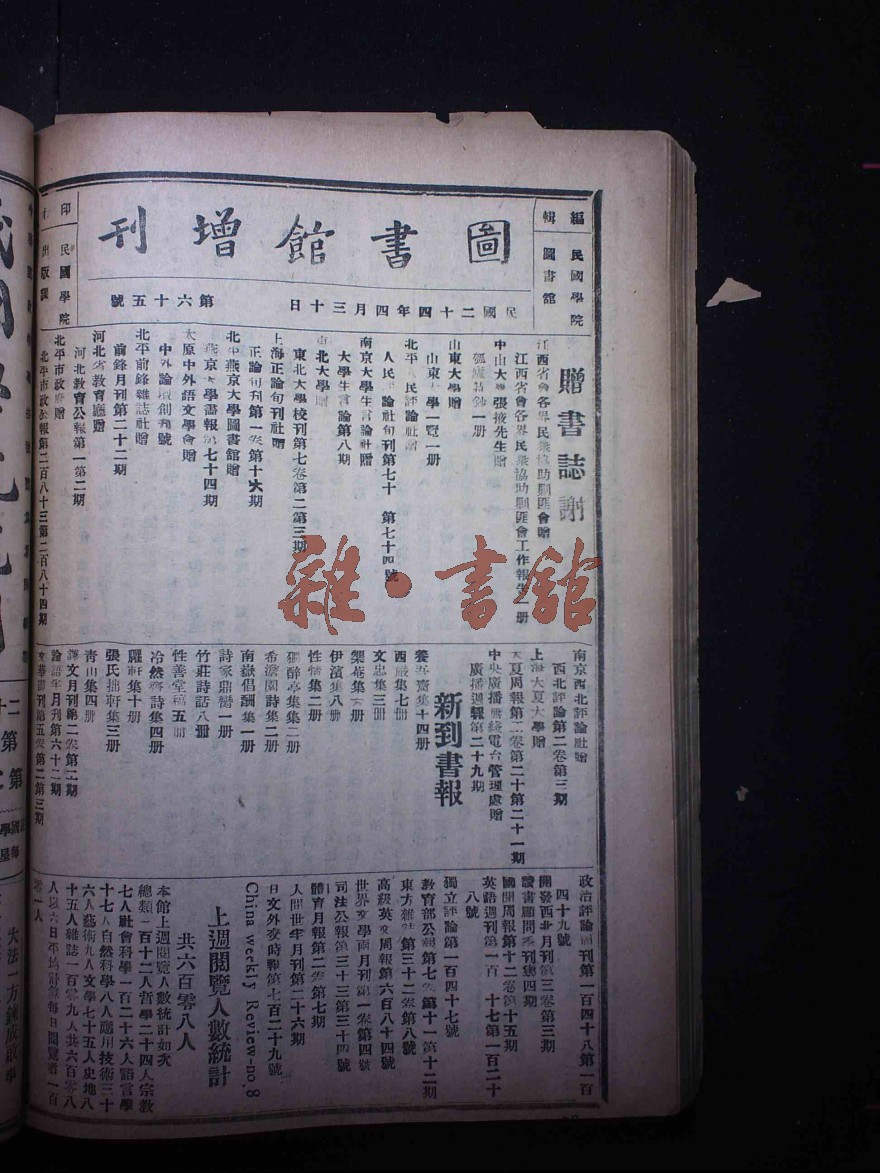 圖書館增刊
編輯 民國學院圖書館
民國二十四年四月三十日
第六十五號
印行 民國學院出版課
贈書誌謝
江西省會各界民衆協助剿匪會贈
江西省會各界民衆協助剿匪會工作報告一册
中山大學張掖先生贈
一册
山東大學贈
山東大學一覽一册
北平人民評論社贈
人民評論社旬刊第七十 第七十四號
南京大學生言論社贈
大學生言論第八期
東北大學贈
東北大學校刊第七卷第二第三期
上海正論旬刊社贈
正論旬刊第一卷第十六期
北平燕京大學圖書館贈
燕京大學書報第七十四期
太原中外語文學會贈
中外論壇創刊號
北平前鋒雜誌社贈
前鋒月刊第二十二期
河北省教育廳贈
河北教育公報第一第二期
北平市政府贈
北平市政公報第二百八十三第二百八十四期
南京西北評論社贈
西北評論第二卷第三期
上海大夏大學贈
大夏周報第 卷第二十第二十一期
中央廣播無綫電台管理處贈
廣播週報第二十九期
新到書報
養吾齋集十四册
西巖集七册
文忠集三册
榘菴集六册
伊濱集八册
性情集二册
獨醉亭集集二册
希澹園詩集二册
南嶽倡酬集一册
詩家鼎臠一册
竹莊詩話八册
性善堂稿五册
冷然齋詩集四册
臞軒集十册
張氏拙軒集三册
青山集四册
譯文月刊第二卷第二期
論語半月刊第六十二期
文華圖刊第五卷第二第三期
政治評論週刊第一百四十八第一百
四十九號
開發西北月刊第三卷第三期
讀書顧問季刊第四期
國聞周報第十二卷第十五期
英語週刊第一百一十七第一百二十
八號
獨立評論第一百四十七號
教育部公報第七卷第十一第十二期
東方雜誌第三十二卷第八號
高級英文周報第六百八十四號
世界文學兩月刊第一卷第四號
司法公報第三十三第三十四號
體育月報第二卷第七期
人間世半月刊第二十六期
日文外交時報第七百二十九號
China weekly Review-no.8
上週閱覽人數統計
共六百零八人
本館上週閱覽人數統計如次
總類一百十二人哲學二十四人宗教
七人社會科學一百二十六人語言學
十七人自然科學八人應用技術三十
六人藝術九人文學七十五人史地八
十五人雜誌一百零九人共六百零八
人以六日平均計算每日閱覽者一百
零一人
雜·書館